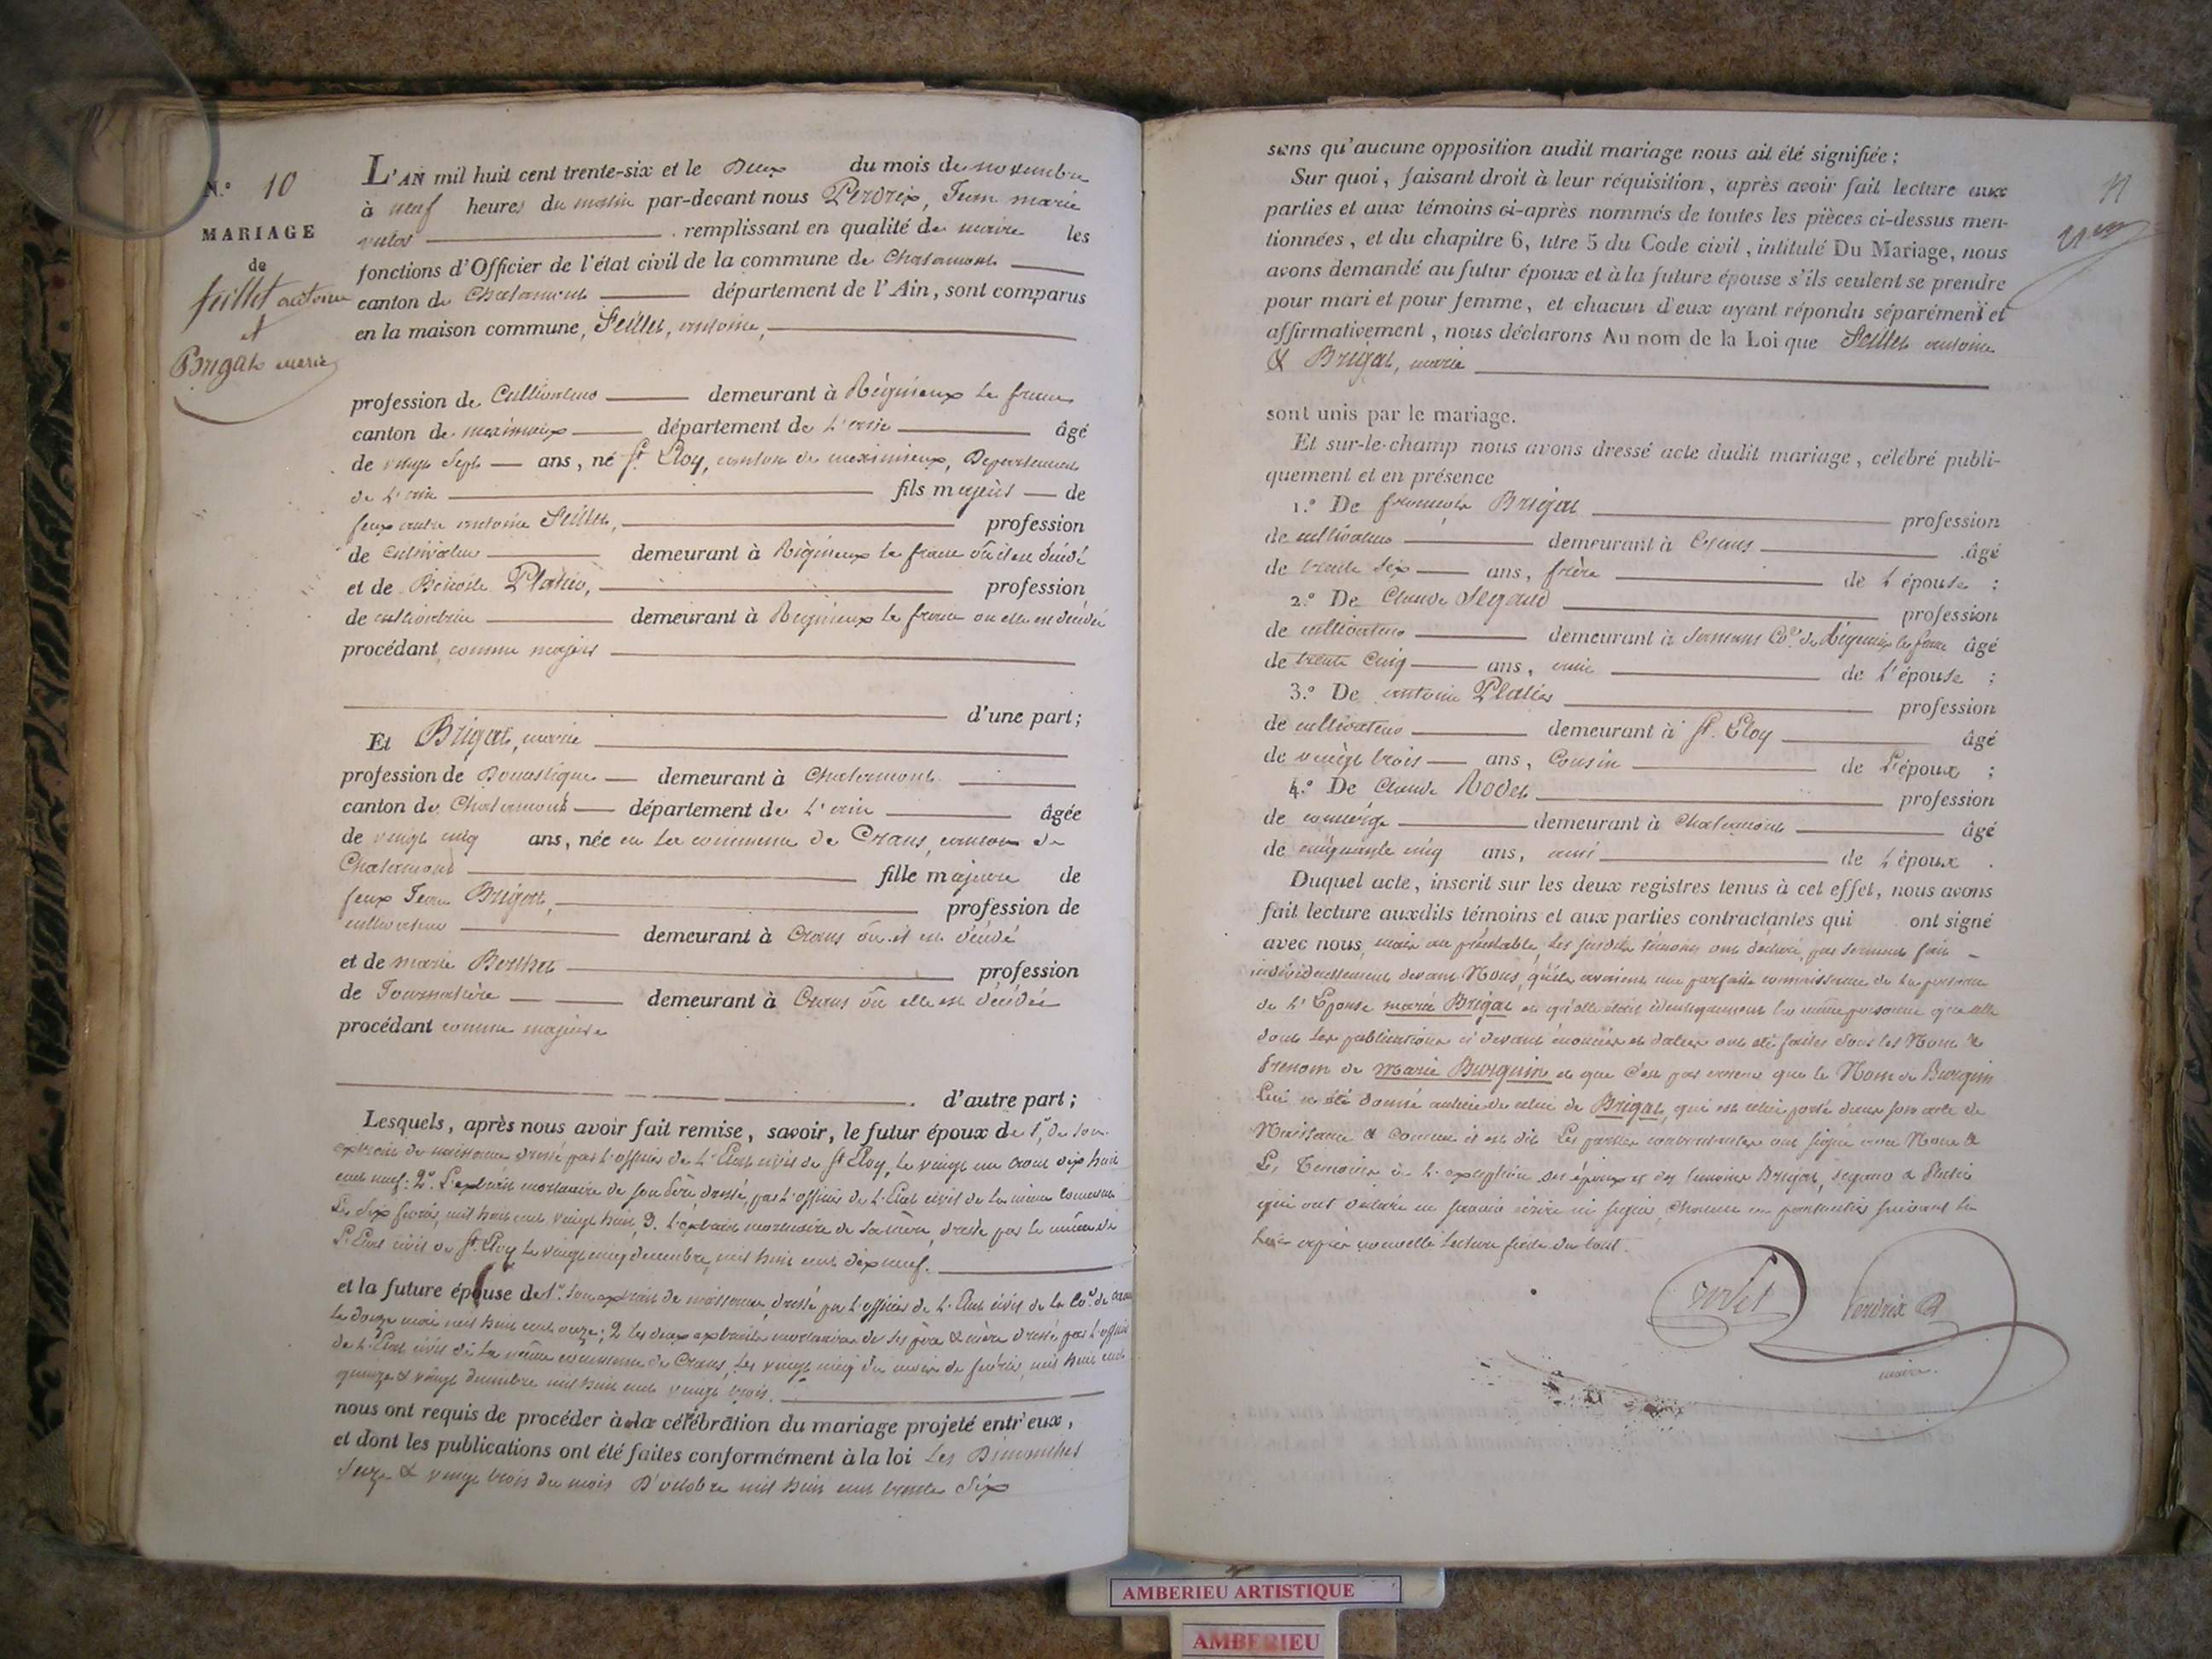 N.° 10
MARIAGE
de
feillet antoine
et
Brigat marie
L'AN mil huit cent trente-six et le Deux du mois de novembre
à neuf heures du matin par-devant nous Perdrix, Jean marie
remplissant en qualité de maire les
fonctions d'Officier de l'état civil de la commune de Chalamont
canton de Chalamont département de l'Ain, sont comparus
en la maison commune, Feillet, antoine,
profession de Cultivateur demeurant à Rignieux le franc
canton de meximieux département de L'ain âgé
de vingt sept ans, né St Eloy, canton de meximieux, Département
de L'ain fils majeur de
feux antoine Feillet, profession
de cultivateur demeurant à Rignieux le franc où il est décédé
et de Benoite Platier, profession
de cultivatrice demeurant à Rignieux le franc ou elle est décédée
procédant comme majeur
d'une part;
Et Brigat, marie
profession de Domestique demeurant à Chalamont
canton de Chalamont département de L'ain âgée
de vingt cinq ans, née en la commune de Crans, canton de
Chalamont fille majeure de
feux Jean Brigat, profession de
cultivateur demeurant à Crans où il est décédé
et de marie Berthet profession
de Journalière demeurant à Crans où elle est décédée
procédant comme majeure
d'autre part;
Lesquels, après nous avoir fait remise, savoir, le futur époux de 1° de son
extrait de naissance dressé par l'officier de L'Etat civil de St Eloy, le vingt un aout dix huit
cent neuf: 2° L'extrait mortuaire de son Père dressé par L'officier de L'Etat civil de la même commune
Le six fevrier, mil huit cent vingt huit, 3. L'extrait mortuaire de sa mère, dressé par le même de
L'Etat civil de St Eloy le vingt cinq decembre, mil huit cent dix neuf.
et la future épouse de 1° son extrait de naissance, dressé par L'officier de L'Etat civil de la Cne de Crans
le douze mai mil huit cent onze; 2 les deux extraits mortuaires de ses père & mère dressé par L'officier
de L'Etat civil de la même commune de Crans, Les vingt cinq du mois de fevrier, mil huit cent
quinze & vingt decembre mil huit cent vingt trois.
nous ont requis de procéder à la célébration du mariage projeté entr'eux,
et dont les publications ont été faites conformément à la loi Les Dimanches
seize & vingt trois du mois D'octobre mil huit cent trente six
sans qu'aucune opposition audit mariage nous ait été signifiée;
Sur quoi, faisant droit à leur réquisition, après avoir fait lecture aux
parties et aux témoins ci-après nommés de toutes les pièces ci-dessus men-
tionnées, et du chapitre 6, titre 5 du Code civil, intitulé Du Mariage, nous
avons demandé au futur époux et à la future épouse s'ils veulent se prendre
pour mari et pour femme, et chacun d'eux ayant répondu séparément et
affirmativement, nous déclarons Au nom de la Loi que Feillet antoine
& Brigat, marie
sont unis par le mariage.
Et sur-le-champ nous avons dressé acte dudit mariage, célébré publi-
quement et en présence
1.° De francois Brigat profession
de cultivateur demeurant à Crans âgé
de trente six ans, frère de L'épouse ;
2.° De Claude Segaud profession
de cultivateur demeurant à Cne de Rignieux le franc âgé
de trente cinq ans, ami de L'épouse ;
3.° De antoine Platier profession
de cultivateur demeurant à St. Eloy âgé
de vingt trois ans, Cousin de L'époux ;
4.° De Claude Rodet profession
de concierge demeurant à Chalamont âgé
de cinquante cinq ans, ami de L'époux .
Duquel acte, inscrit sur les deux registres tenus à cet effet, nous avons
fait lecture auxdits témoins et aux parties contractantes qui ont signé
avec nous, mais au préalable, les susdits témoins ont déclaré, par serment fait
individuellement devant Nous, qu'ils avaient une parfaite connaissance de la personne
de L'Epouse marie Brigat et qu'elle était identiquement la même personne que celle
dont les publications ci devant énoncées et datées ont été faites sous les Nom &
Prenom de Marie Burquin et que c'est par erreur que le Nom de Burquin
Lui a été donné au lieu de celui de Brigat, qui est celui porté dans son acte de
Naissance & comme il est dit Les parties contractantes ont signé avec Nous &
Les Témoins à L'exception des époux et des temoins Brigat, Segaud & Platier
qui ont déclaré ne savoir écrire ni signer, chacun en particulier suivant la
Loi après nouvelle lecture faite du tout.
Rodet Perdrix
maire.
AMBERIEU ARTISTIQUE
AMBERIEU